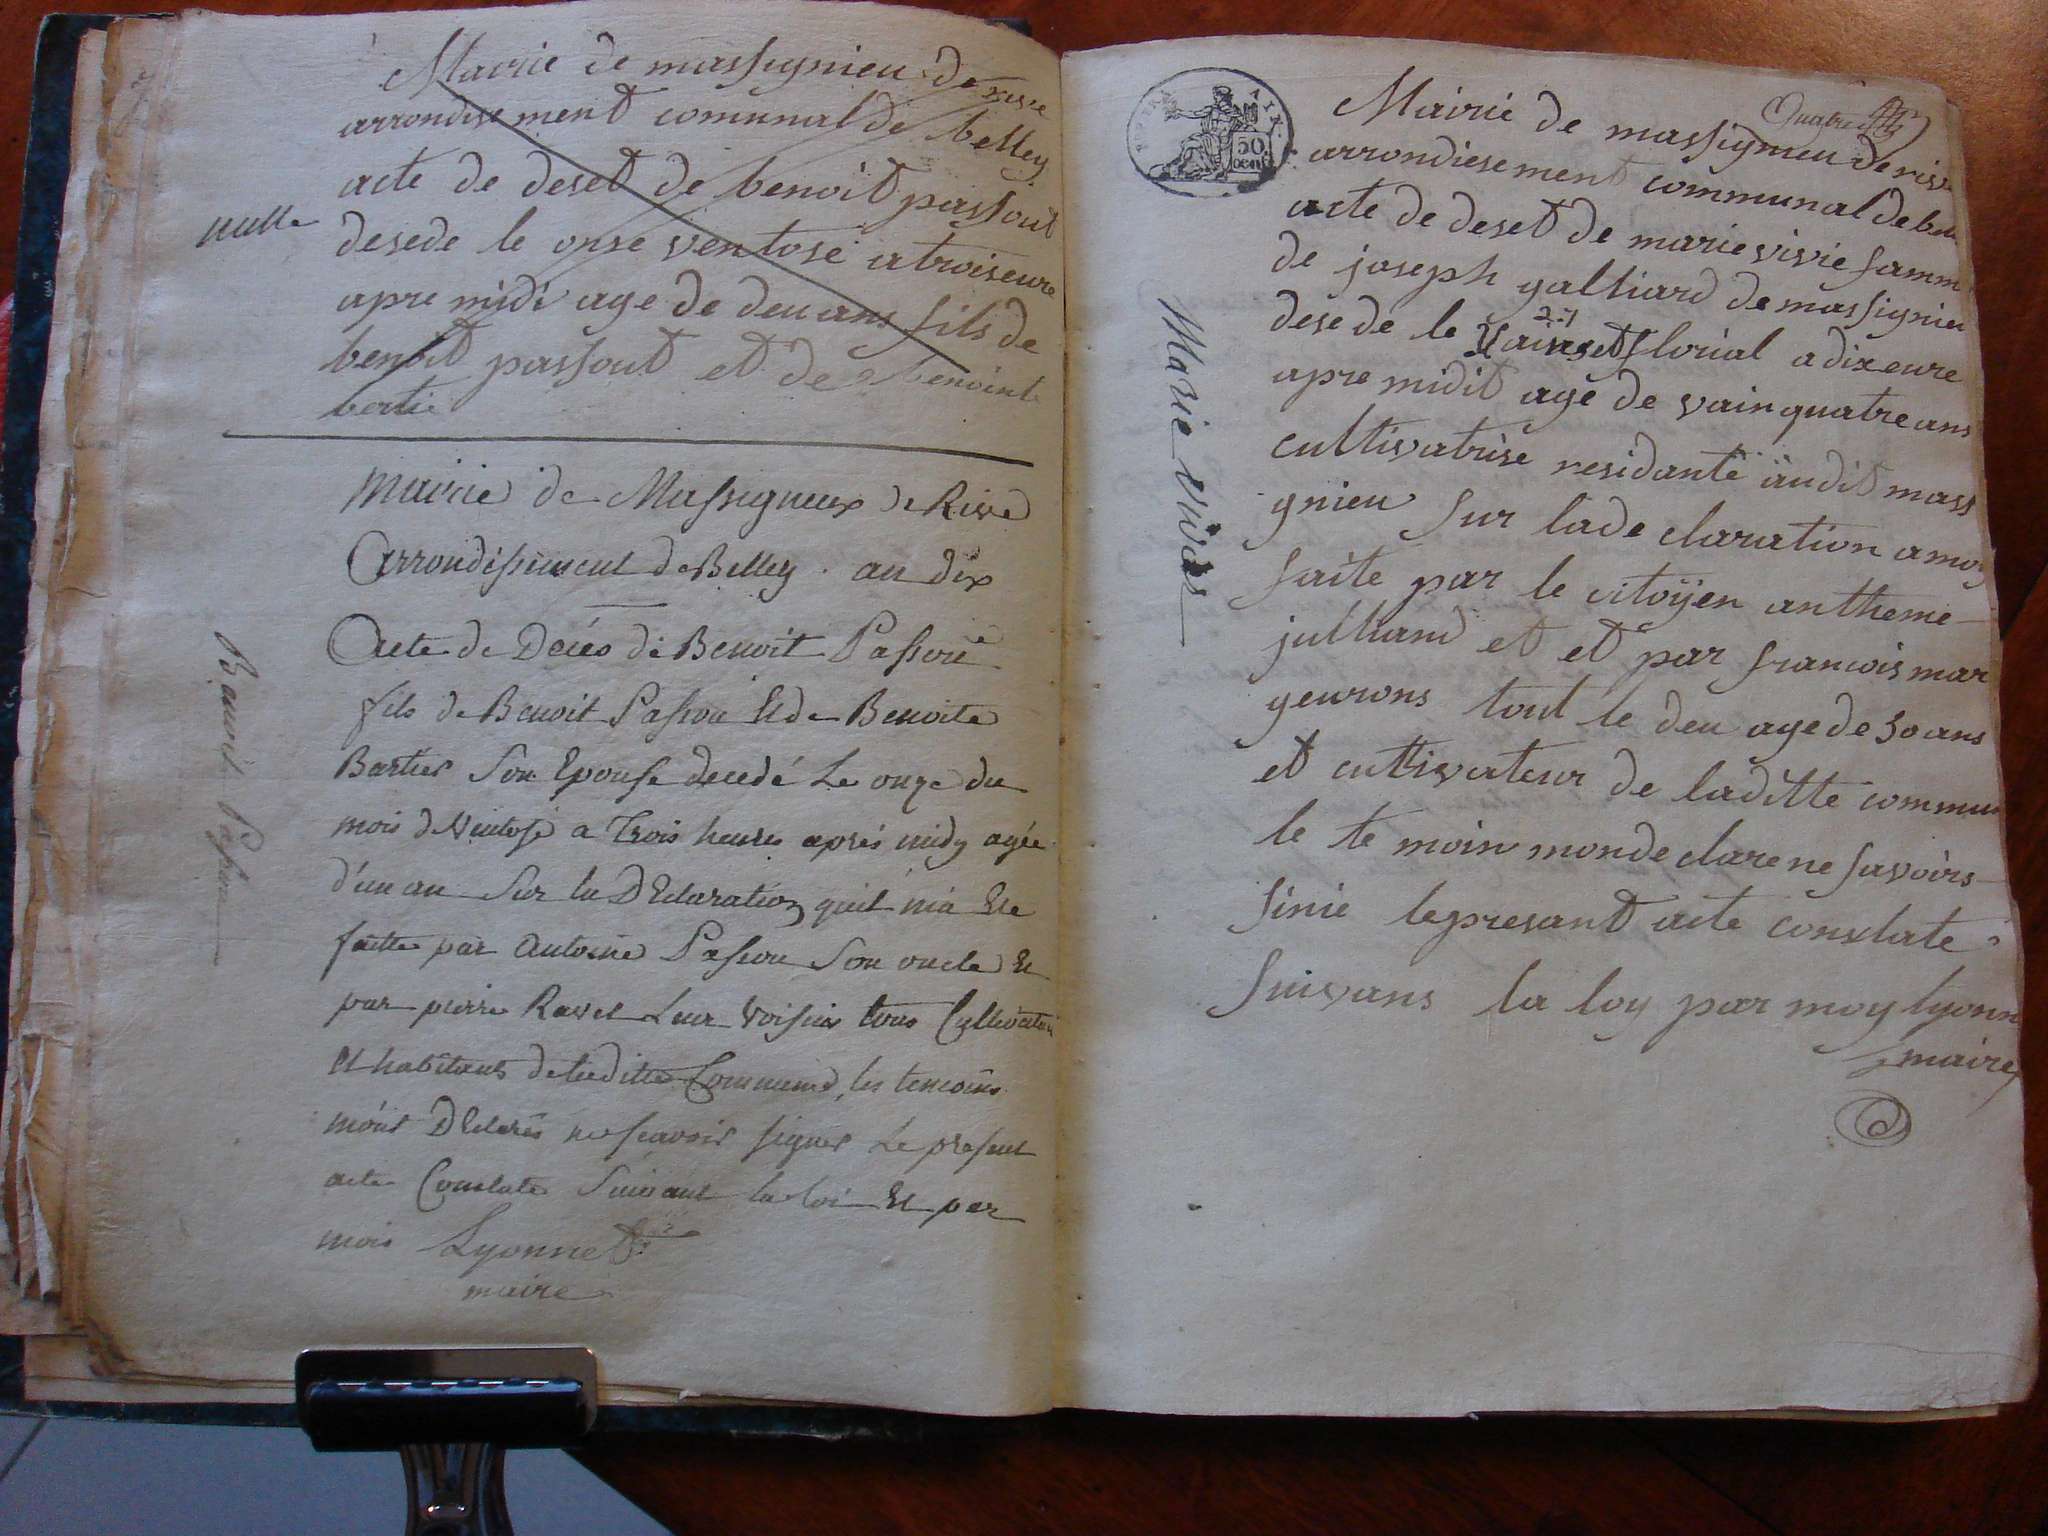 Mairie de massignieu de rive
arrondisement comunal de belley
acte de deset de benoit passout
desede le onse ventose a troiseure
apre midi age de deu ans fils de
benoit passout et de benoint
bertie
nulle
Mairie de Massigneux de Rive
Arrondissement de Belley. an dix
Acte de Décés de Benoit Passou
fils de Benoit Passou Et de Benoite
Bartier Son Epouse decedé Le onze du
mois de Ventose a Trois heures aprés midy agée
d'un an Sur la DEclaration quil ma Ete
faitte par Antoine Passou Son oncle Et
par pierre Ravet Leur Voisin tous Cultivateur
Et habitants de laditte Commune, les temoins
mont DEclarés ne scavoir signer Le present
acte Constate Suivant la loi Et par
mois Lyonnet
maire
Benoit Passou
50
cent
AIN
Quatre
Mairie de massignieu de rive
arrondiesement communal de bell
acte de deset de marie vivié famm
de joseph galliard de massignieu
27
desede le vainset florial a dix eure
apre midit agé de vain quatre ans
cultivatrise residante audit mass
gnieu sur lade claration a moy
faite par le citoÿen antheme
julliand et et par francois mar
geurons tout le deu age de 30 ans
et cultivateur de laditte commun
le te moin mon declare ne savoirs
sinié lepresant acte constate
suivans la loy par moy lyonn
maire
Marie vivier